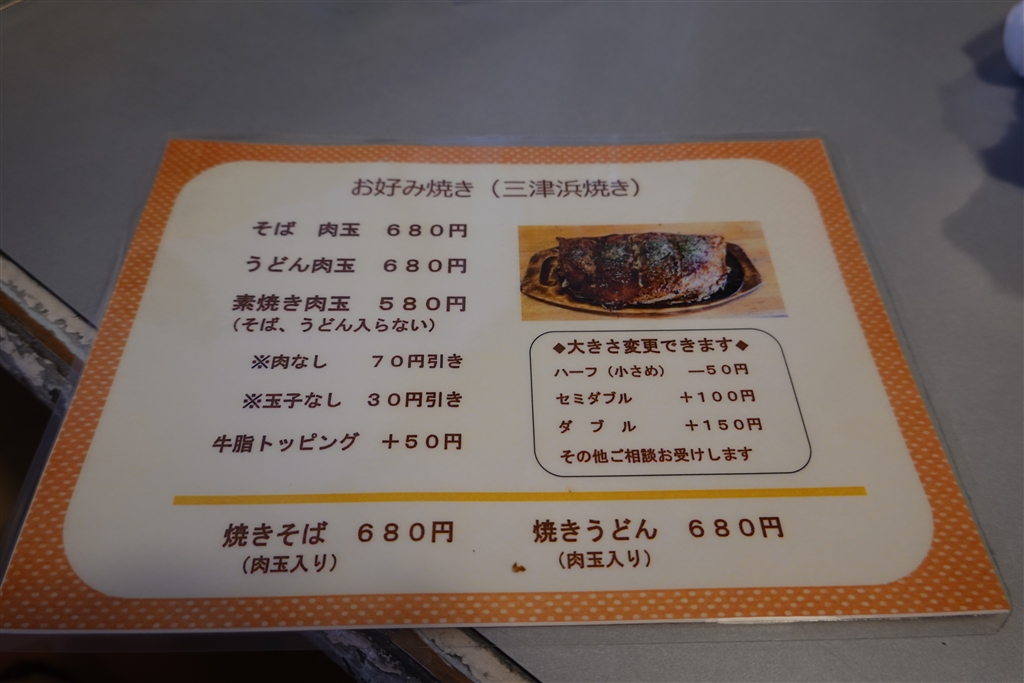 お好み焼き（三津浜焼き）
そば　肉玉　６８０円
うどん肉玉　６８０円
素焼き肉玉　５８０円
（そば、うどん入らない）
※肉なし　７０円引き
※玉子なし　３０円引き
牛脂トッピング　＋５０円
◆大きさ変更できます◆
ハーフ（小さめ）　―５０円
セミダブル　＋１００円
ダ　ブ　ル　＋１５０円
その他ご相談お受けします
焼きそば　６８０円
（肉玉入り）
焼きうどん　６８０円
（肉玉入り）